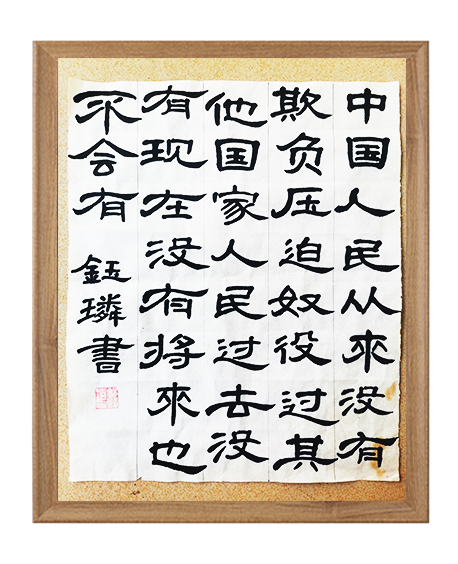 中国人民从來没有
欺负压迫奴役过其
他国家人民过去没
有现在没有将來也
不会有
鈺璘書